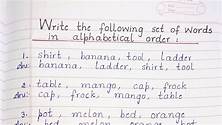 Write the following set of words
in alphabetical order :
1. shirt , banana, tool , ladder
Ans: banana, ladder, shirt, tool
2. table, mango, cap, frock
Ans: cap, frock, mango, table
3. pot , melon , bed, orange
bed melon orange pot